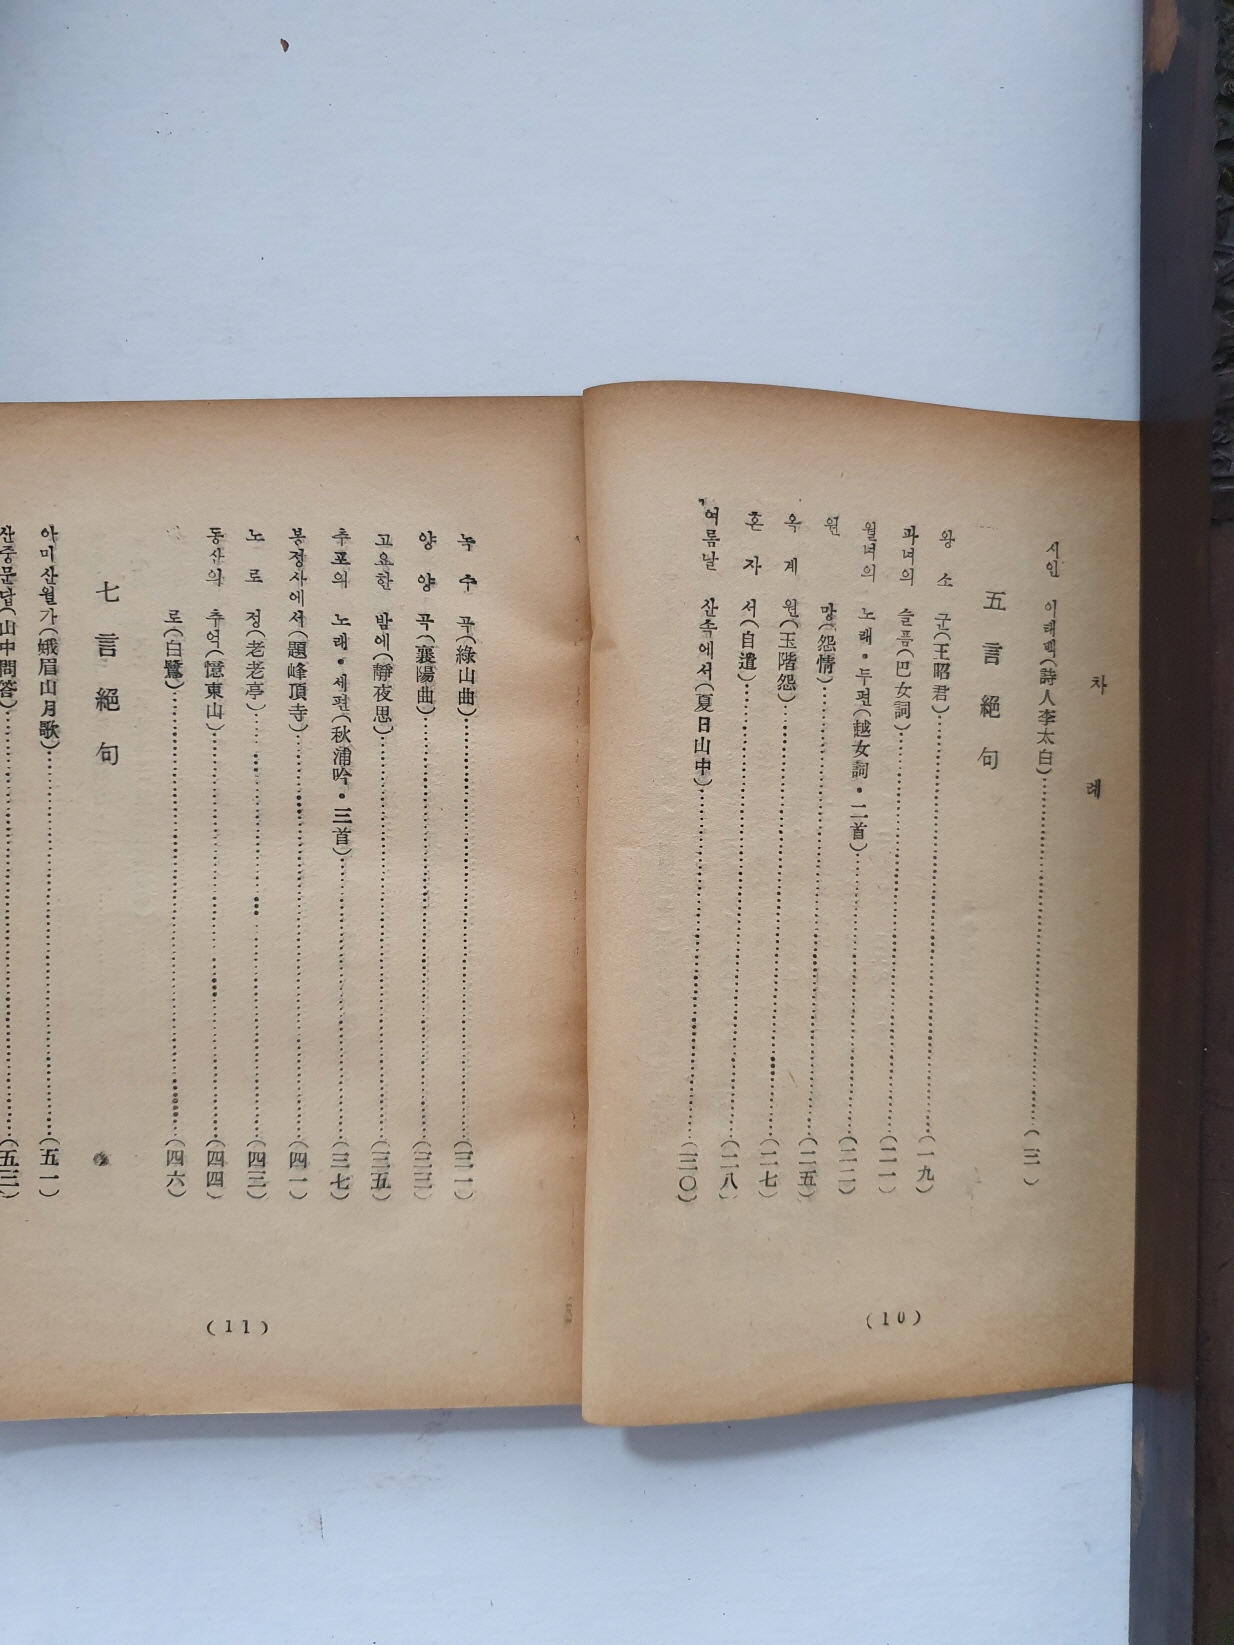 차례
시인 이태백(詩人李太白)……(三)
五言絕句
왕소군(王昭君)……(一九)
파녀의 슬픔(巴女詞)……(二一)
월녀의 노래•두편(越女詞•二首)……(二二)
원망(怨情)……(二五)
옥계원(玉階怨)……(二七)
혼자서(自遣)……(二八)
여름날 산속에서(夏日山中)……(三〇)
(10)
녹수곡(綠山曲)……(三一)
양양곡(襄陽曲)……(三三)
고요한 밤에(靜夜思)……(三五)
추포의 노래•세편(秋浦吟•三首)……(三七)
봉정사에서(題峰頂寺)……(四一)
노로정(老老亭)……(四三)
동산의 추억(憶東山)……(四四)
로(白鷺)……(四六)
七言絕句
아미산월가(娥眉山月歌)……(五一)
산중문답(山中問答)……(五三)
(11)